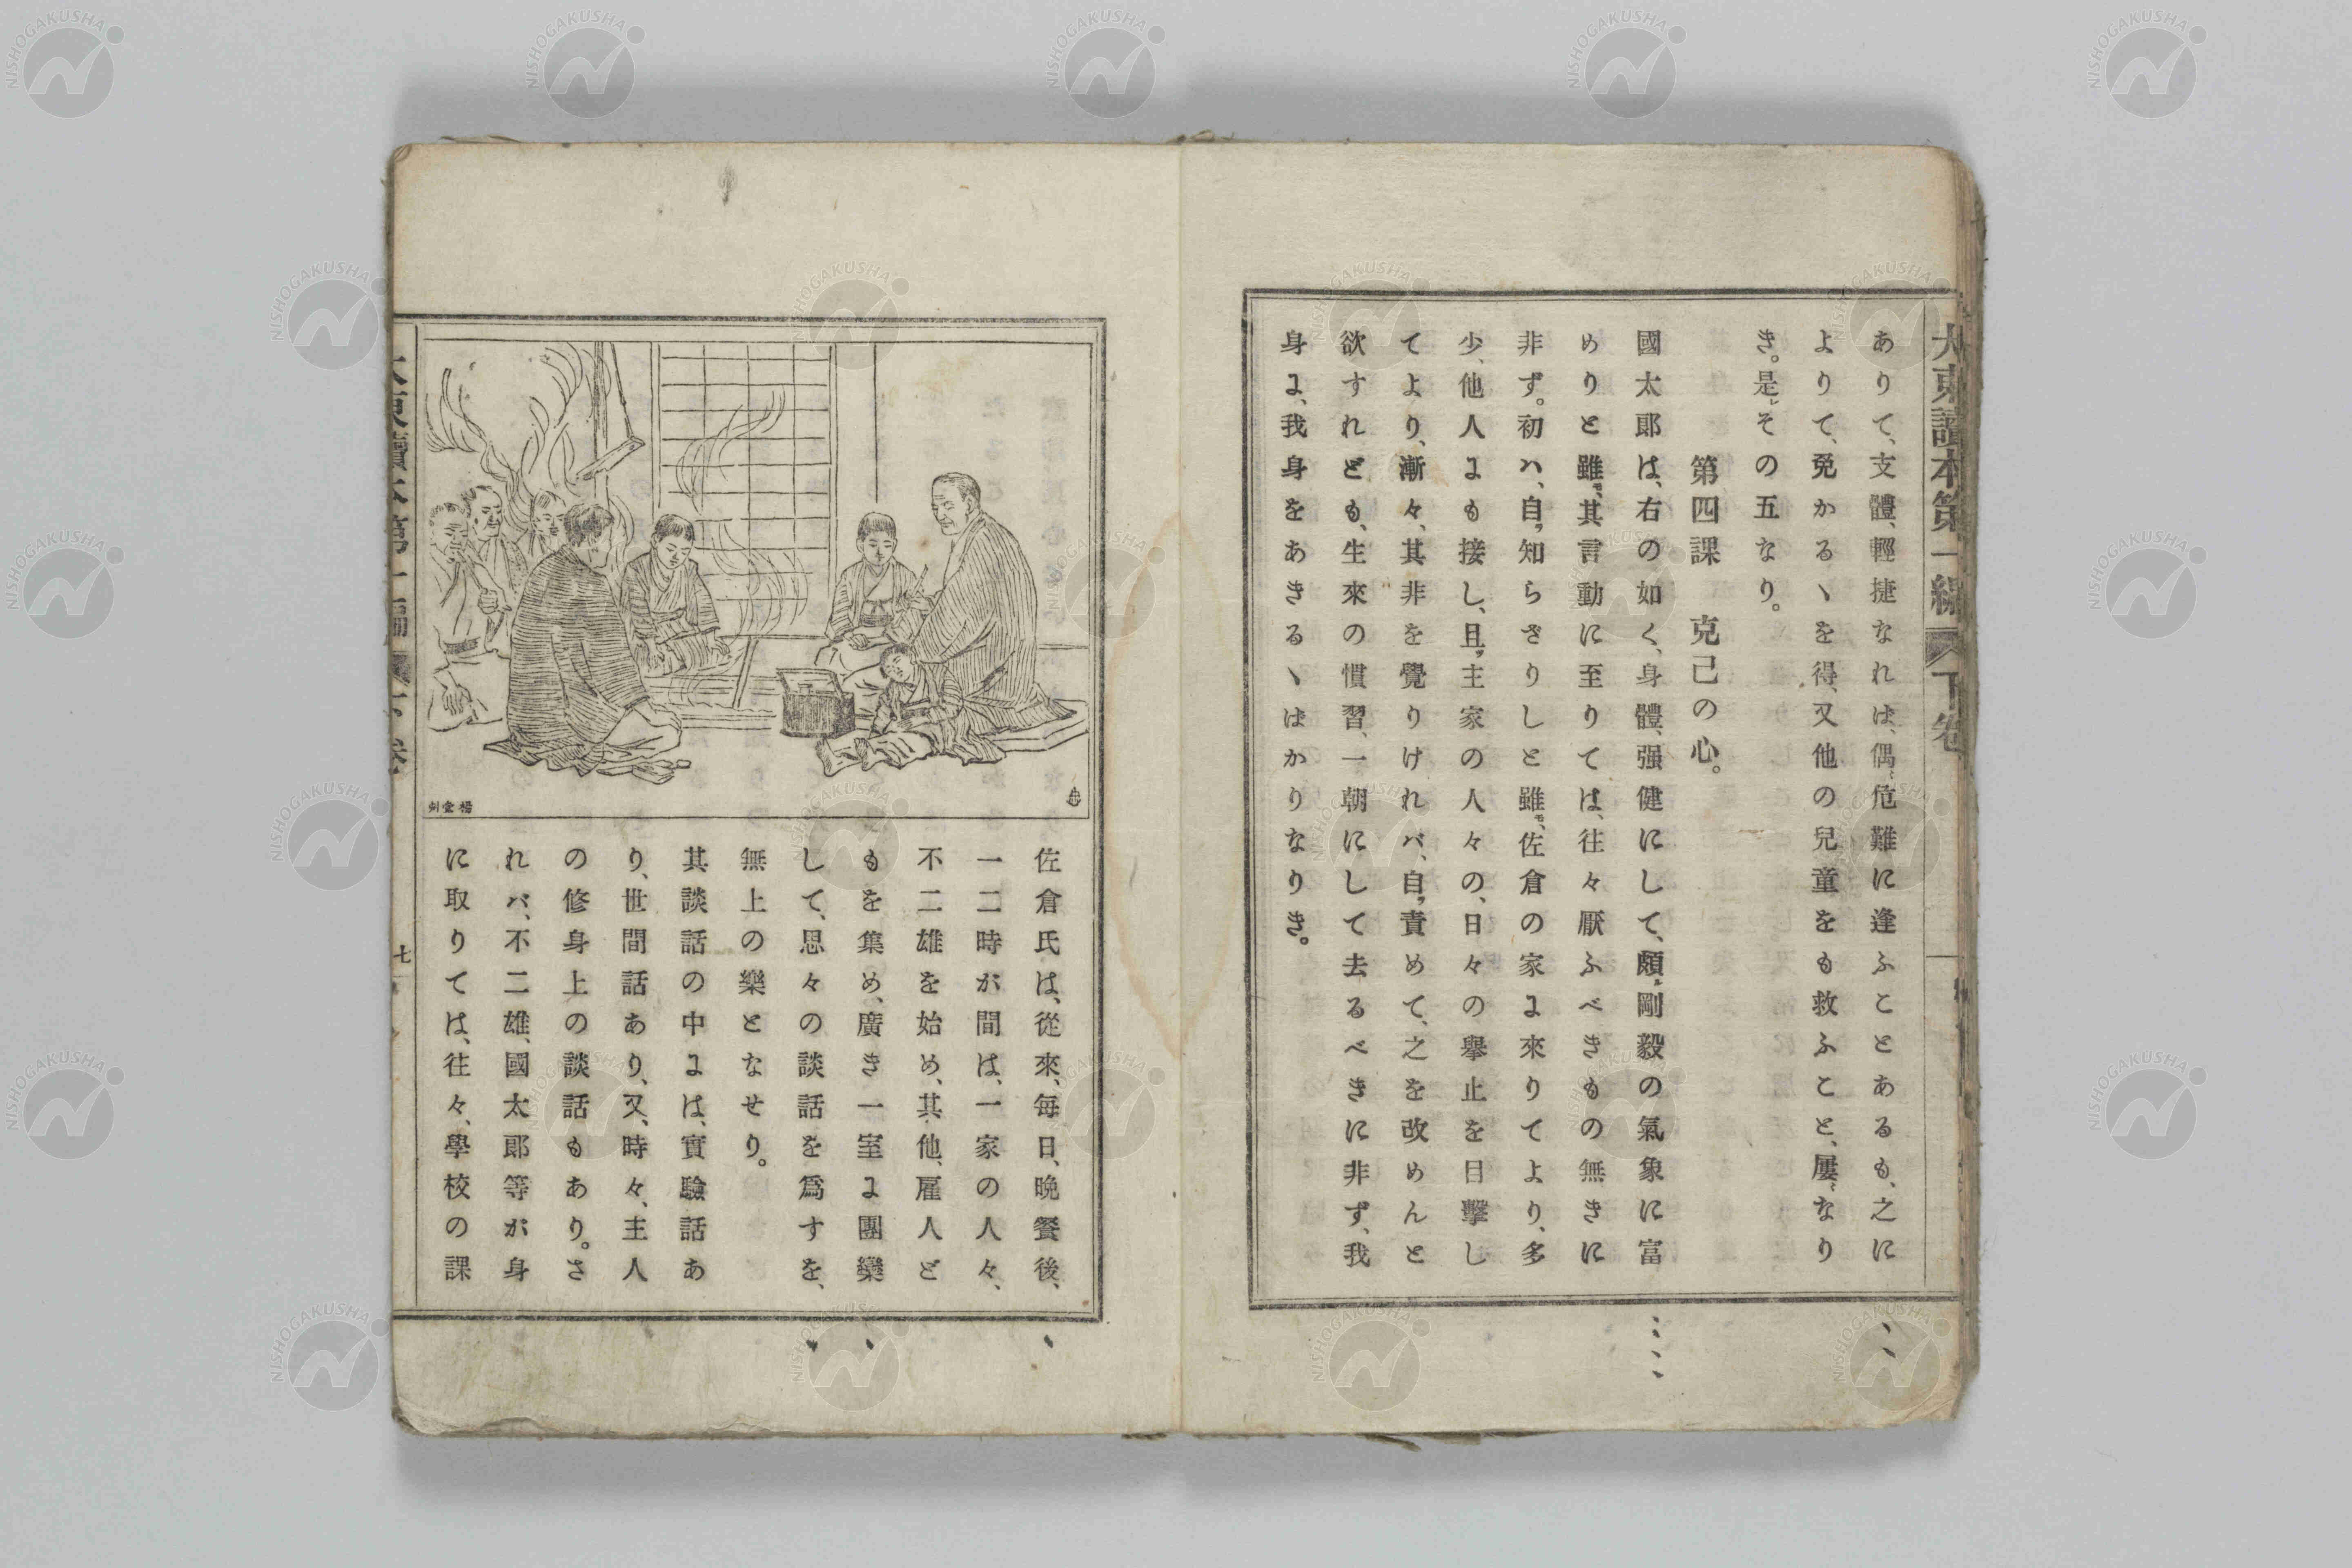 大東讀本第一編 下卷
ありて、支體、輕捷なれば、偶〻危難に逢ふことあるも、之に
よりて、免かるヽを得、又他の兒童をも救ふこと、屢〻なり
き。是レその五なり。
第四課 克己の心。
國太郎は、右の如く、身體、强健にして、頗ル剛毅の氣象に富
めりと雖モ、其言動に至りては、往々厭ふべきもの無きに
非ず。初ハ、自ラ知らざりしと雖モ、佐倉の家に來りてより、多
少、他人にも接し、且ツ主家の人々の、日々の擧止を目擊し
てより、漸々、其非を覺りけれバ、自ラ責めて、之を改めんと
欲すれども、生來の慣習、一朝にして去るべきに非ず、我
身に、我身をあきるヽばかりなりき。
佐倉氏は、從來、每日、晩餐後、
一二時が間は、一家の人々、
不二雄を始め、其他、雇人ど
もを集め、廣き一室に團欒
して、思々の談話を爲すを、
無上の樂となせり。
其談話の中には、實驗話あ
り、世間話あり、又、時々、主人
の修身上の談話もあり。さ
れバ、不二雄、國太郎等が身
に取りては、往々、學校の課
七
NISHOGAKUSHA